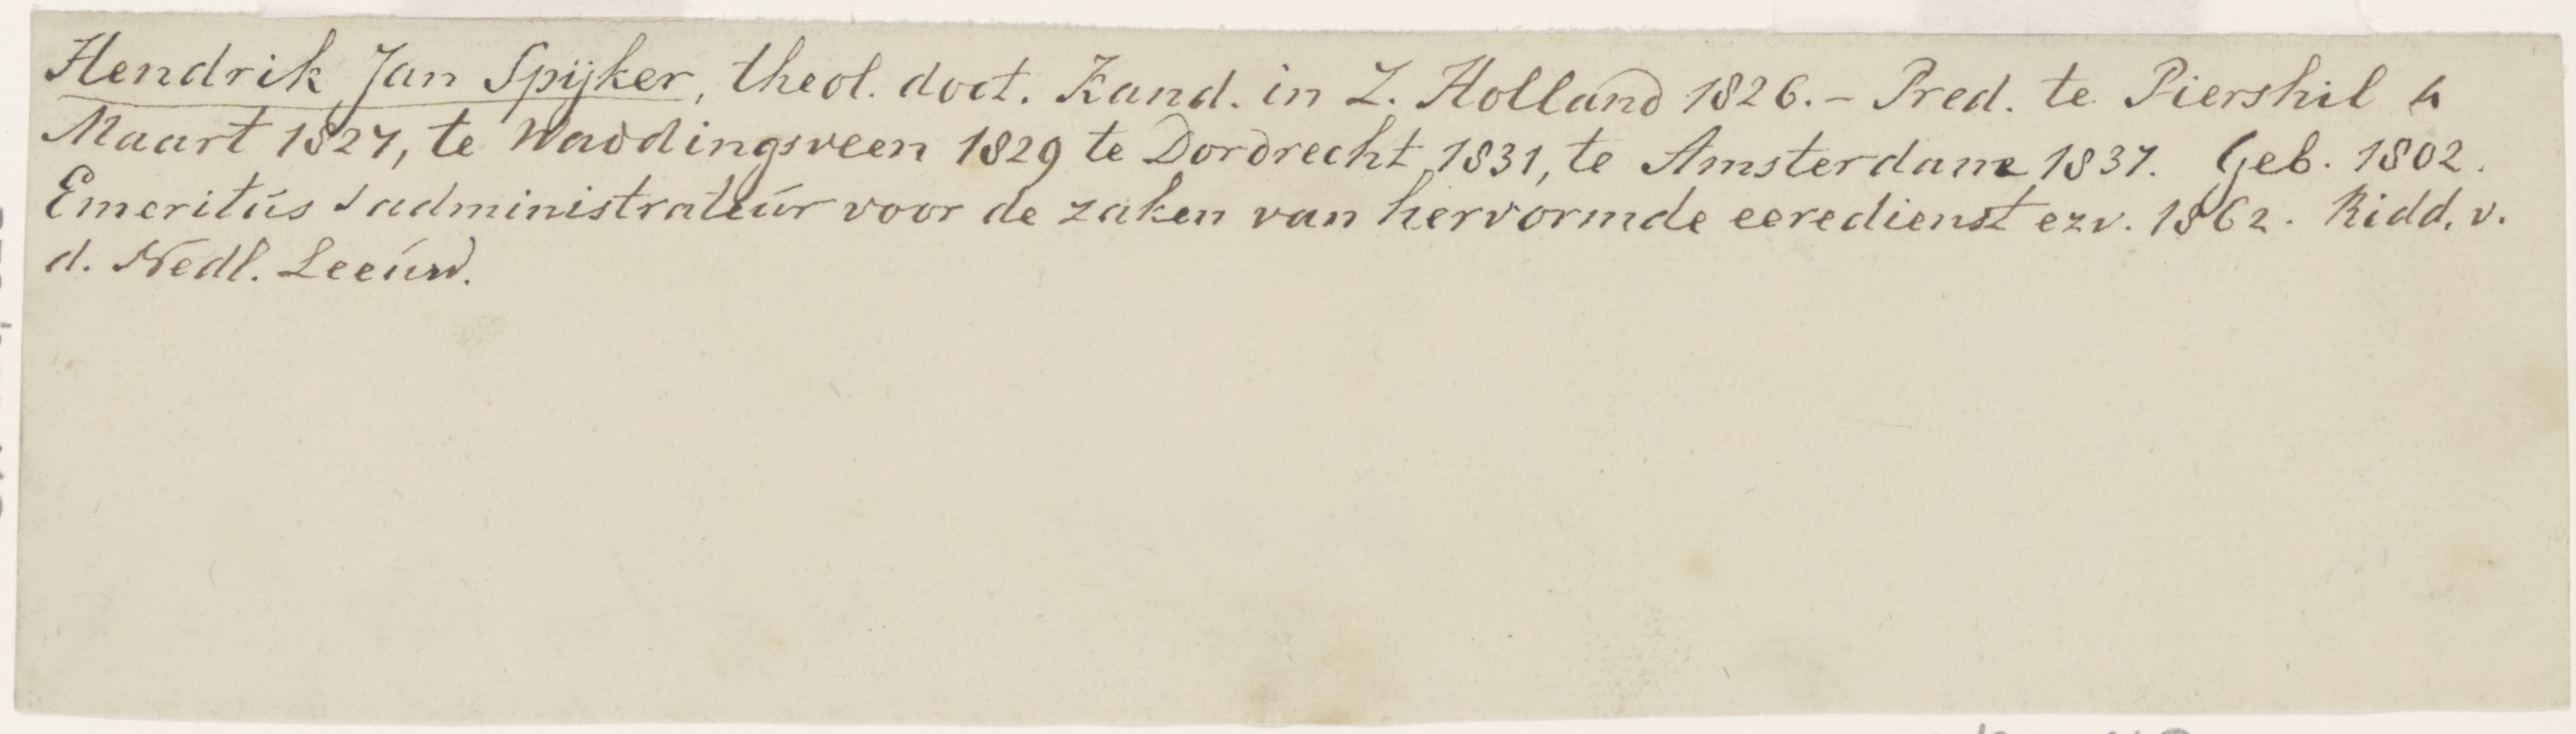 Hendrik Jan Spijker, theol. doct. Kand. in Z. Holland 1826. - Pred. te Piershil 4
Maart 1827, te Waddingsveen 1829 te Dordrecht 1831, te Amsterdam 1837. Geb. 1802.
Emeritús & administrateúr voor de zaken van hervormde eeredienst ezv. 1862. Ridd. v.
d. Nedl. Leeúw.